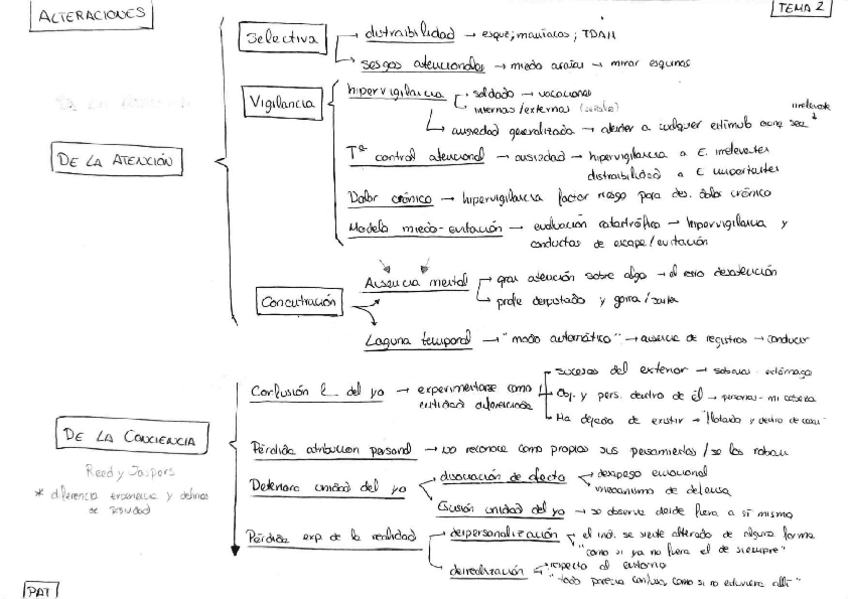 ALTERACIONES
TEMA 2
DE LA ATENCIÓN
Selectiva
distraibilidad → esqui; maníacos; TDAH
sesgos atencionales → miedo arañas → mirar esquinas
Vigilancia
hipervigilancia
soldado → vacaciones
internas/externas
ansiedad generalizada → atender a cualquier estímulo aunq sea irrelevante
Tª control atencional → ansiedad → hipervigilancia a E. irrelevantes
distraibilidad a E importantes
Dolor crónico → hipervigilancia factor riesgo para des. dolor crónico
Modelo miedo-evitación → evaluación catastrófica → hipervigilancia y
conductas de escape/evitación
Concentración
Ausencia mental
gran atención sobre algo → el resto desatención
profe despistado y gorra/
Laguna temporal → "modo automático" → ausencia de registros → conducir
DE LA CONCIENCIA
Reed y Jaspers
* diferencia experiencia y delirios
de pasividad
Confusión L. del yo → experimentarse como
entidad diferenciada
sucesos del exterior → estómago
Obj. y pers. dentro de él → personas - mi cabeza
Ha dejado de existir → "flotado y dentro de
Pérdida atribución personal → no reconoce como propios sus pensamientos / se los roban
Deterioro unidad del yo
disociación de afecto
desapego emocional
mecanismo de defensa
Escisión unidad del yo → se observa desde fuera a sí mismo
Pérdida exp. de la realidad
despersonalización
el ind. se siente alterado de alguna forma
"como si ya no fuera el de siempre"
desrealización
respecto al entorno
"todo parecía confuso, como si no estuviera allí"
PAT